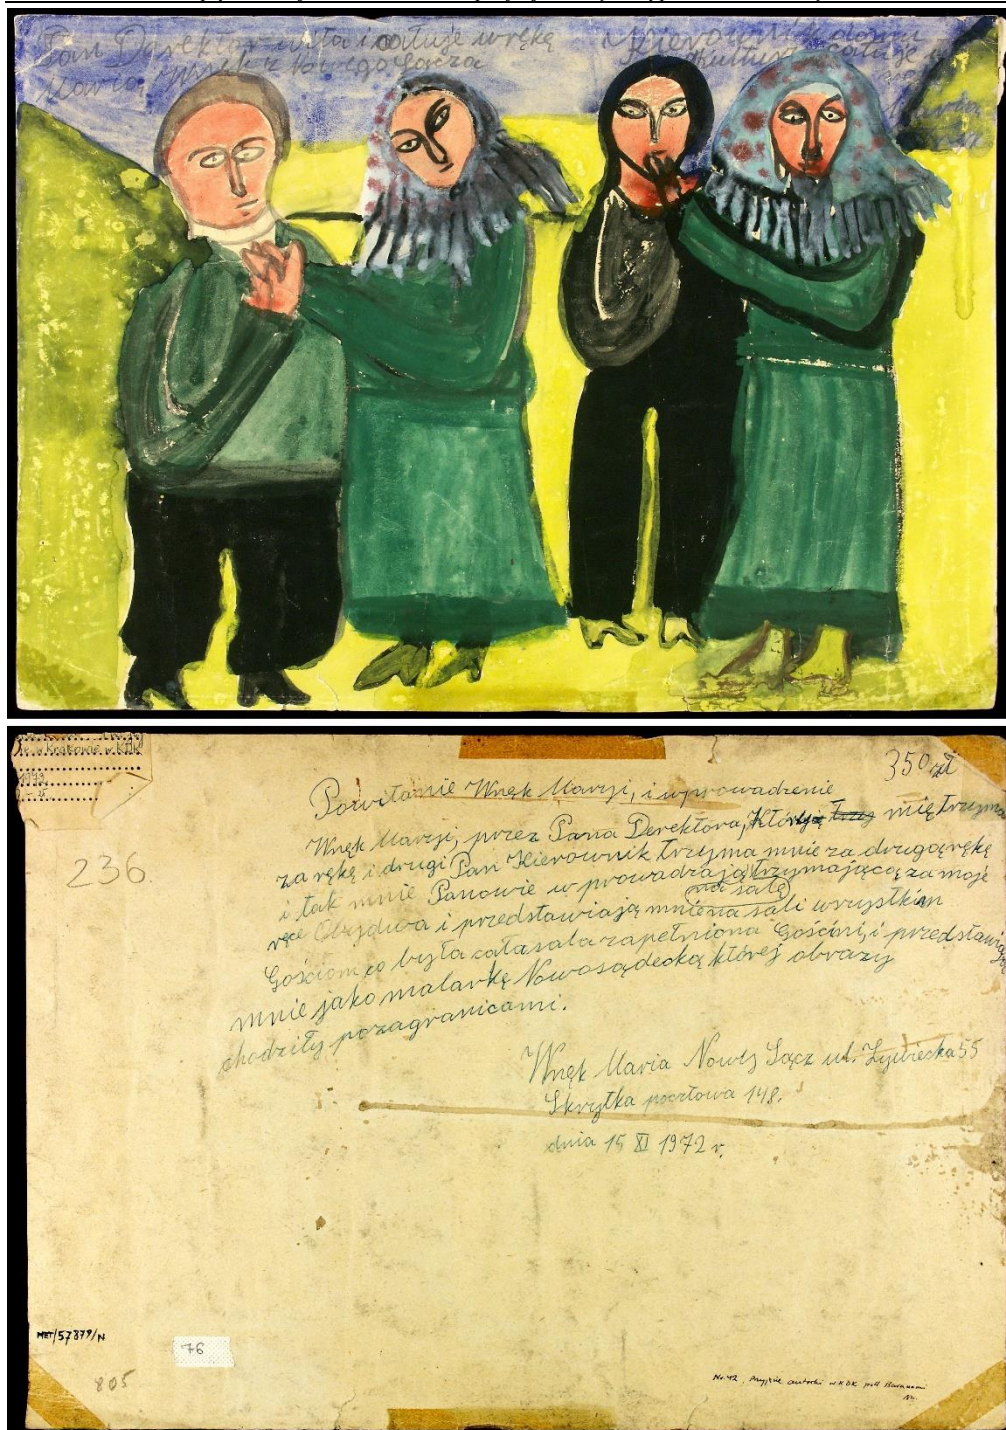 Pan Derektor wita i całuje w rękę
Marią Wnęk z Nowego Sącza
Kierownik domu
Kultury całuje w
Powitanie Wnęk Maryji, i wprowadzenie
350 zł
Wnęk Maryji, przez Pana Derektora, który trzy mię trzyma
za rękę i drugi Pan Kierownik trzyma mnie za drugą rękę
i tak mnie Panowie w prowadzają trzymającą za moje
ręce Obydwa i przedstawiają mnie na salę na sali wszystkim
Gościom co była cała sala zapełniona Gośćmi, i przedstawiają
mnie jako malarkę Nowosądecką której obrazy
chodziły pozagranicami.
Wnęk Maria Nowy Sącz ul. Zywiecka 55
Skrytka pocztowa 148.
dnia 15 XI 1972 r.
w Krakowie w KDK
1972
236.
MET/57879/N
76
805
Nr. 42, Przyjęcie autorki w KDK pod Baranami